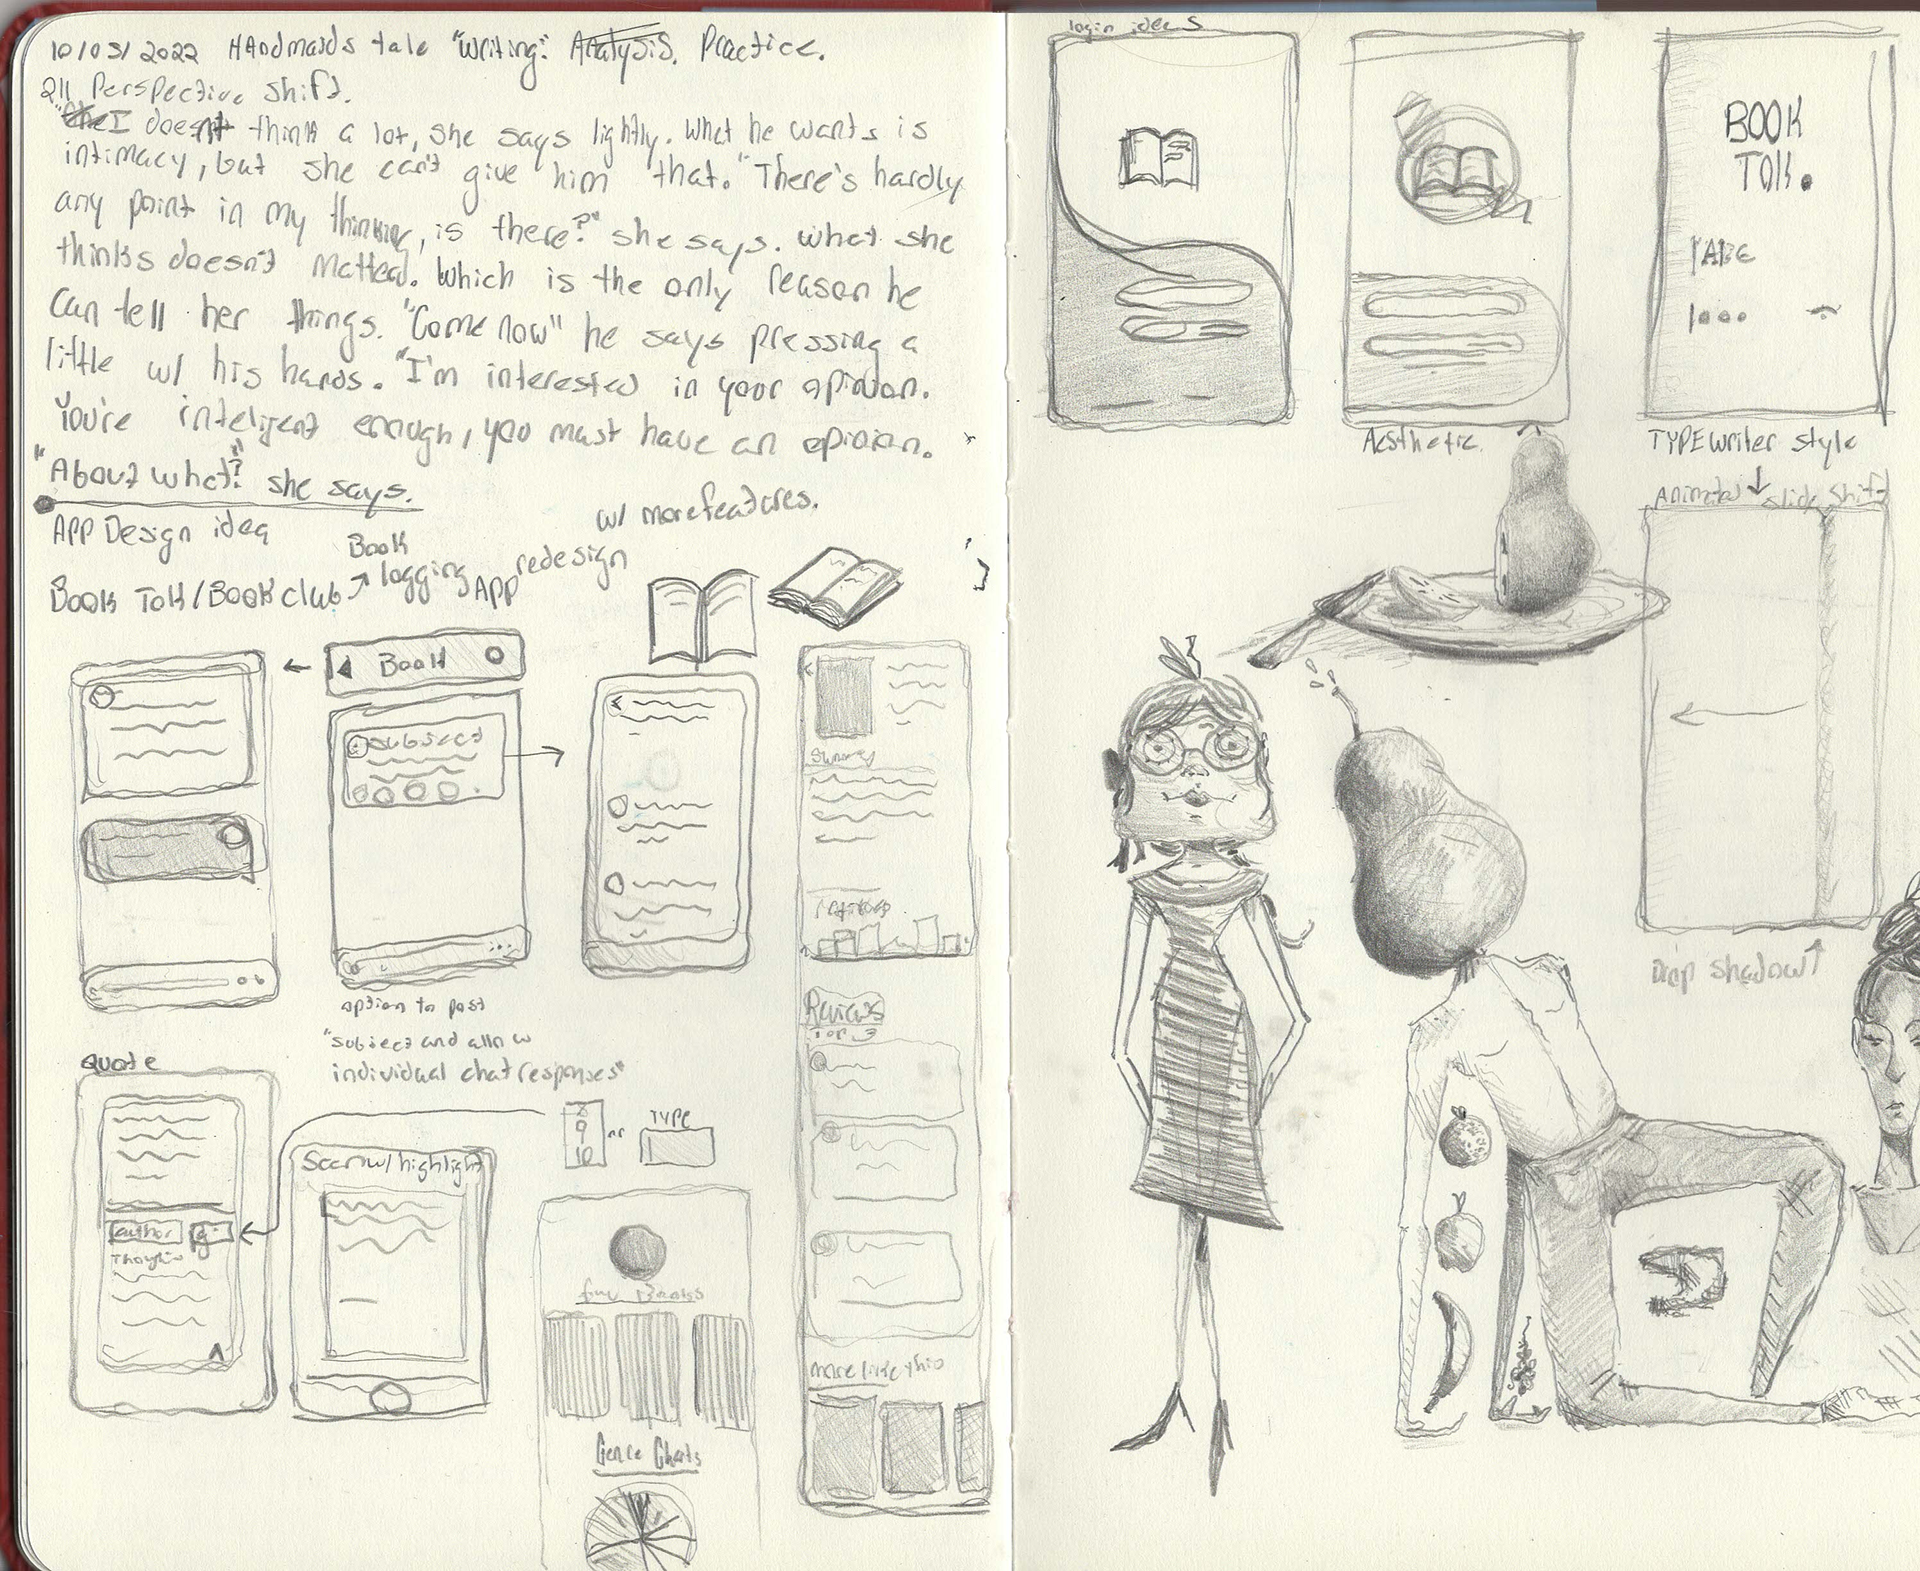 10/03/2022 HAndmaids tale "Writing": Analysis. Practice.
211 Perspective Shift.
"I doesn't think a lot, she says lightly. What he wants is
intimacy, but she can't give him that." "There's hardly
any point in my thinking, is there?" she says. What she
thinks doesn't matter. Which is the only reason he
can tell her things. "Come now" he says pressing a
little w/ his hands. "I'm interested in your opinion.
You're inteligent enough, you must have an opinion.
"About what?" she says.
APP Design idea
w/ more features.
Book Talk/Book club → Book logging APP redesign
Book
subject
Summary
Ratings
option to post
"subject and allow
individual chat responses"
Reviews
Top 3
Quote
author
pg.
Thoughts
Scan w/ highlight
8
9
10
or
TYPE
fav Books
Genre Charts
more like this
login ideas
Aesthetic
BOOK
Talk.
TYPEWriter style
Animated slide shift
Drop shadow